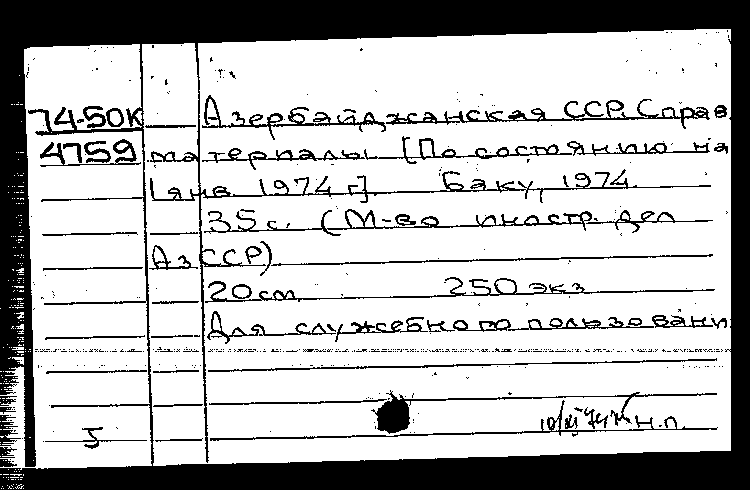 74-50К Азербайджанская ССР. Справ.
4759 материалы [По состоянию на
1 янв. 1974 г]. Баку, 1974.
35 с. (М-во иностр. дел
АзССР)
20 см. 250 экз.
Для служебного пользовани
5 н.п.